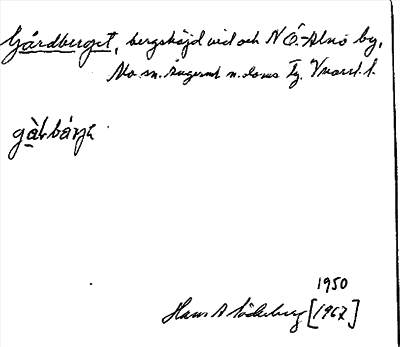 Gårdberget, bergshöjd vid och N Ö-Alnö by,
Mo sn. Ångerml. n. doms Tg. Vnorrl. l.
gàḷbárjə
1950
Hans A Söderberg [1967]